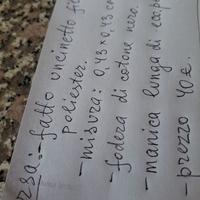 rsa:-fatto uncinetto
poliester.
-misura: 0,43x0,43 c
-fodera di cotone nero.
-manica lunga di
-prezzo 40€.